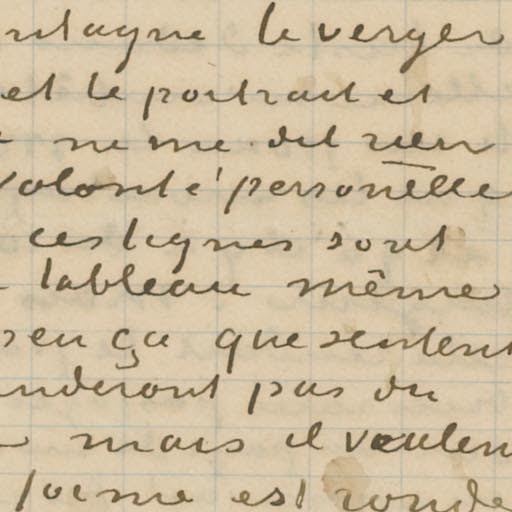 ntagne le verger
et le portrait et
ne me dit rien
volonté personélle
ces lignes sont
tableau même
peu ça que sentent
nderont pas du
mais il veulent
forme est ronde